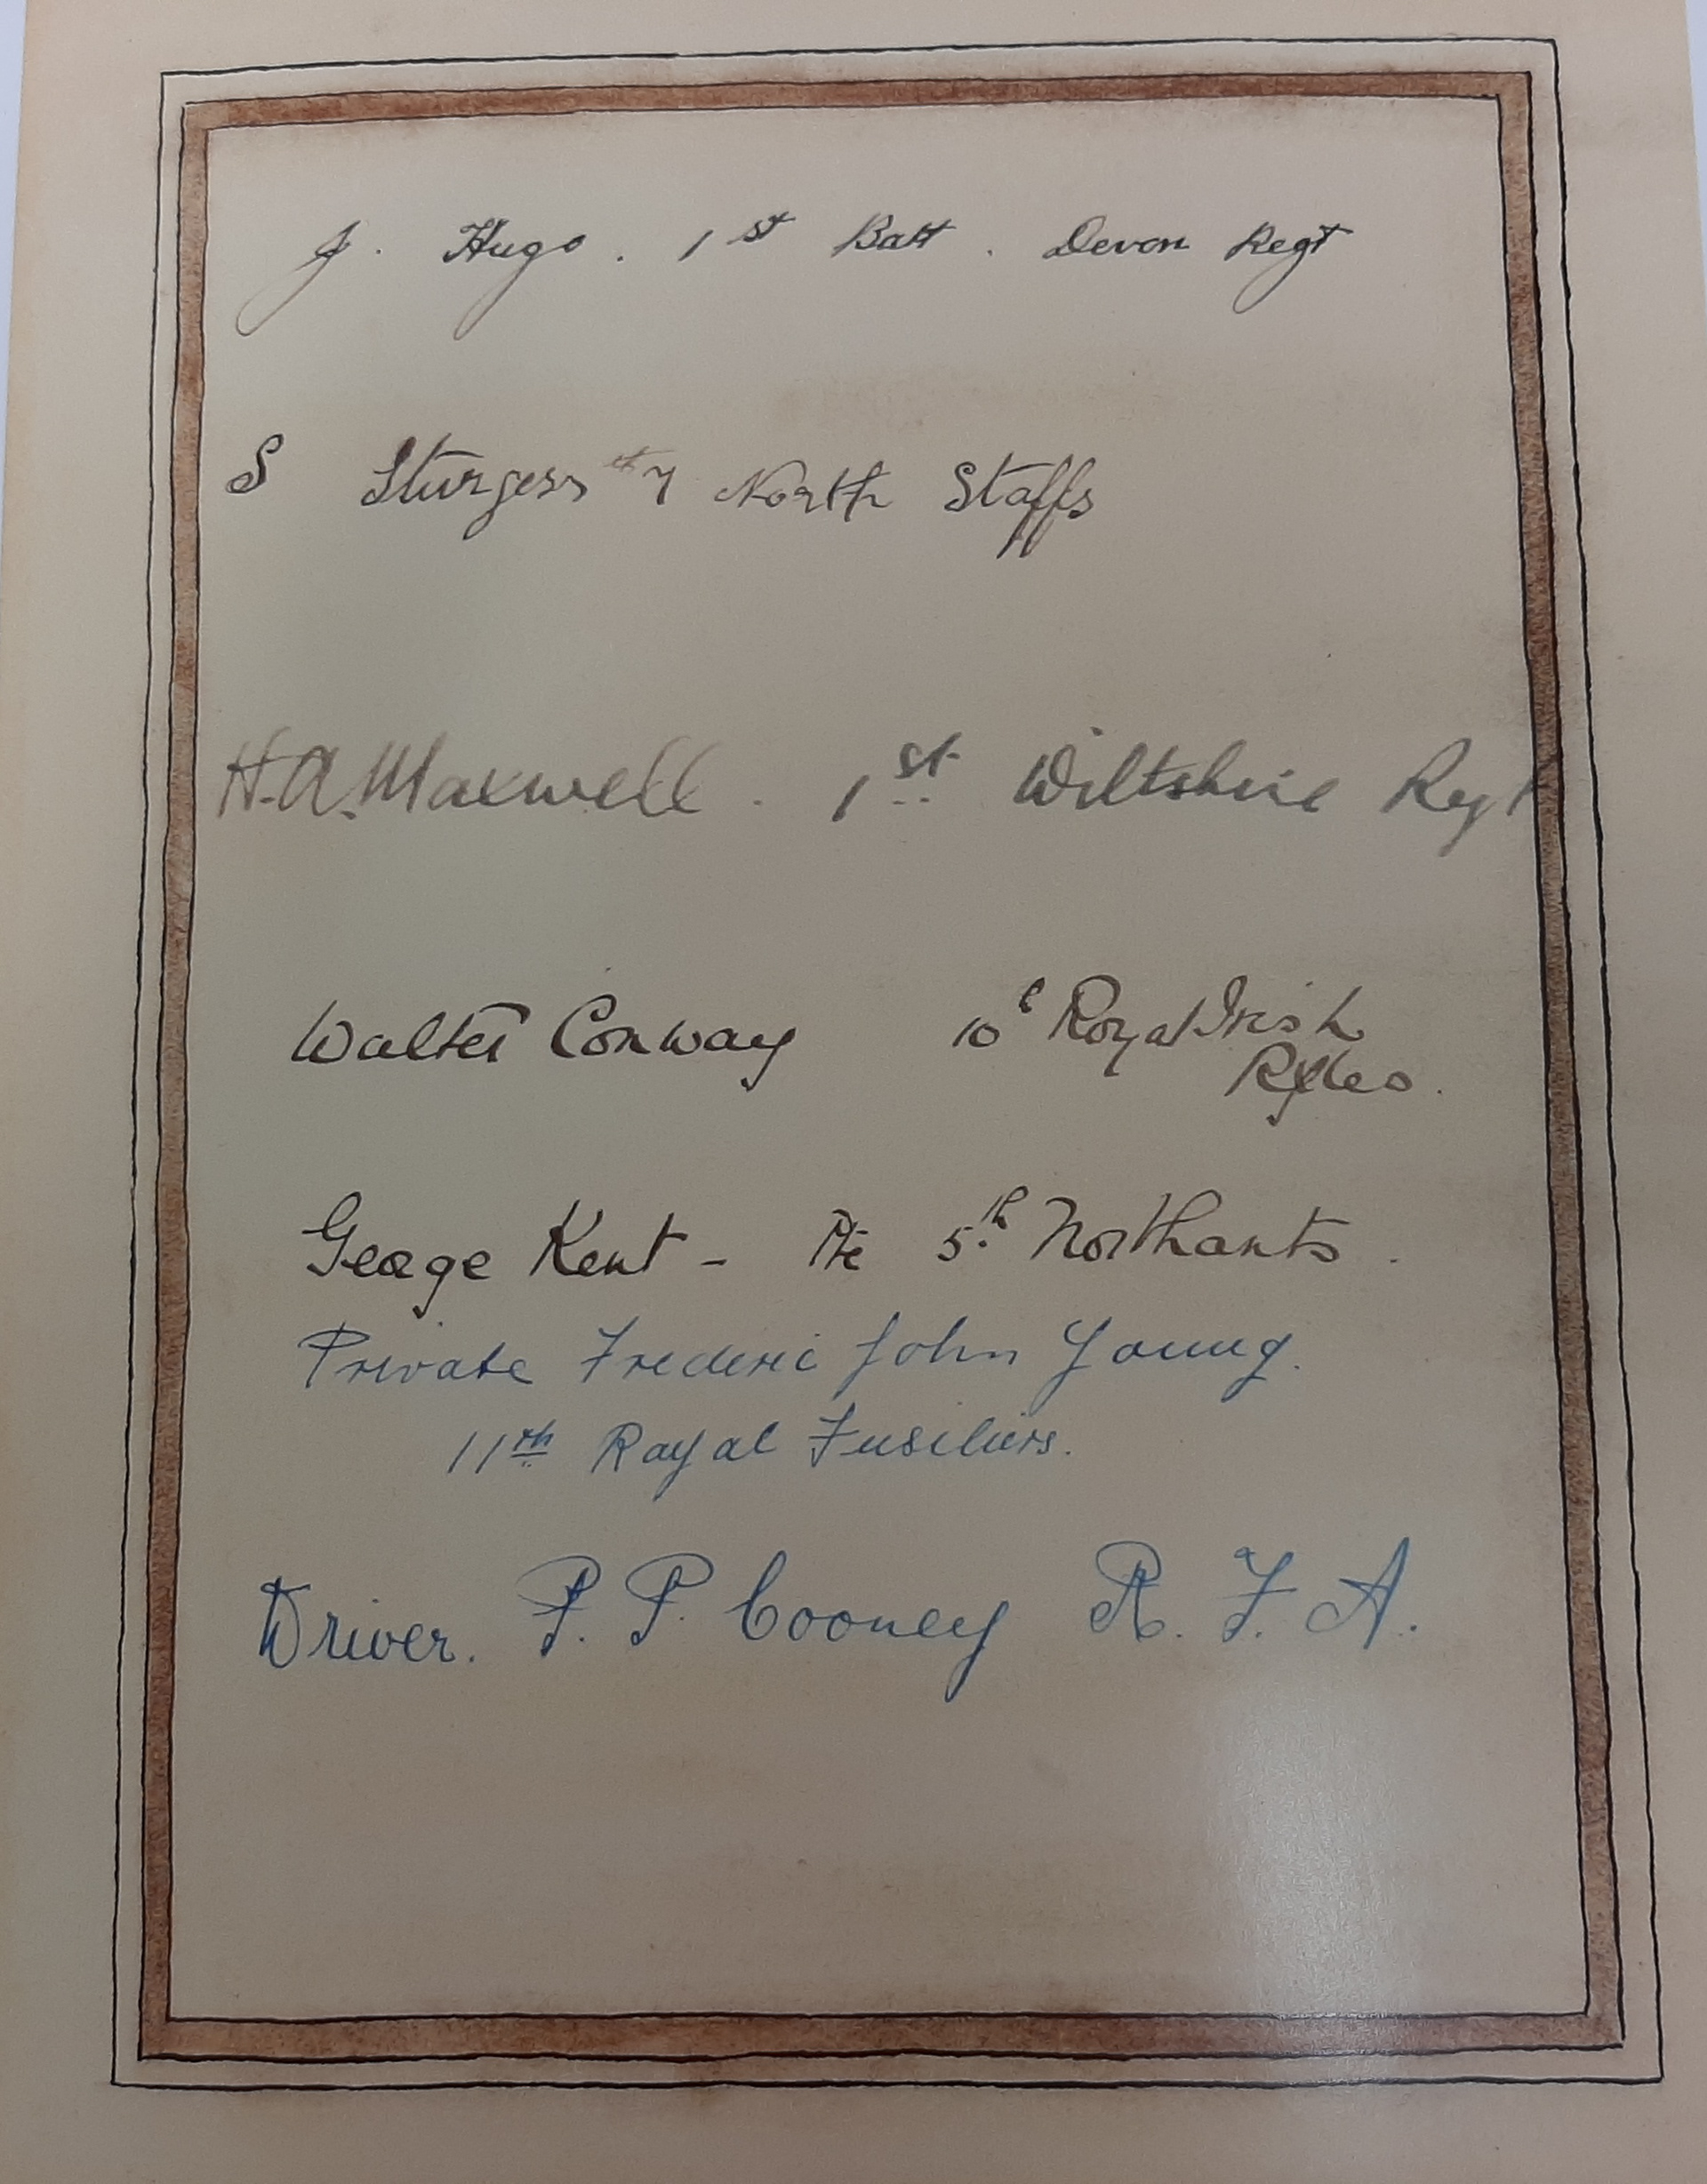 J. Hugo. 1st Batt. Devon Regt
S Sturgess 7 North Staffs
H. A. Maxwell. 1st Wiltshire Regt
Walter Conway 10th Royal Irish
Rifles.
George Kent - Pte 5th Northants.
Private Frederic John Young.
11th Royal Fusiliers.
Driver. P. P. Cooney R. F. A.